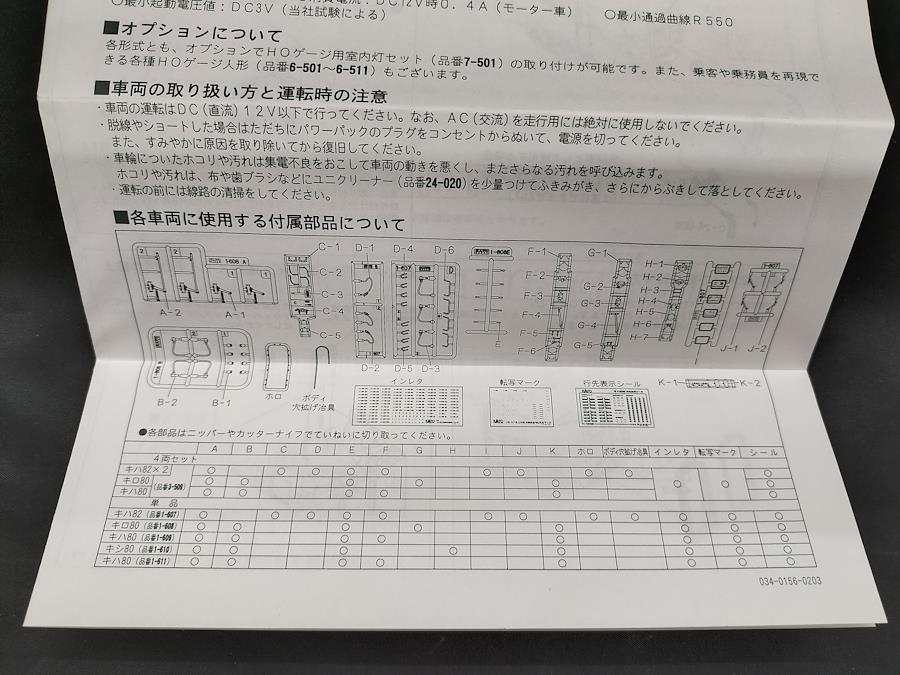 ○最小起動電圧値：DC3V（当社試験による）
消費電流：DC12V時0．4A（モーター車）
○最小通過曲線R550
■オプションについて
各形式とも、オプションでHOゲージ用室内灯セット（品番7-501）の取り付けが可能です。また、乗客や乗務員を再現で
きる各種HOゲージ人形（品番6-501〜6-511）もございます。
■車両の取り扱い方と運転時の注意
・車両の運転はDC（直流）12V以下で行ってください。なお、AC（交流）を走行用には絶対に使用しないでください。
・脱線やショートした場合はただちにパワーパックのプラグをコンセントからぬいて、電源を切ってください。
また、すみやかに原因を取り除いてから復旧してください。
・車輪についたホコリや汚れは集電不良をおこして車両の動きを悪くし、またさらなる汚れを呼び込みます。
ホコリや汚れは、布や歯ブラシなどにユニクリーナー（品番24-020）を少量つけてふきみがき、さらにからぶきして落としてください。
・運転の前には線路の清掃をしてください。
■各車両に使用する付属部品について
2 2 1-608 A 1 1
A-2 A-1
C-1 C-2 C-3 C-4 C-5
D-1 D-4 D-6
1-607
D-2 D-5 D-3
KATO 1-608E
E
F-1 F-2 F-3 F-4 F-5 F-6
G-1 G-2 G-3 G-4 G-5
H-1 H-2 H-3 H-4 H-5 H-6 H-7
J-1 J-2
1-607
B-2 B-1
ホロ
ボディ
穴拡げ冶具
インレタ
転写マーク
行先表示シール
K-1 K-2
●各部品はニッパーやカッターナイフでていねいに切り取ってください。
A B C D E F G H I J K ホロ ボディ穴拡げ冶具 インレタ 転写マーク シール
4両セット
キハ82×2 ○ ○ ○ ○ ○ ○ ○ ○ ○ ○ ○
キロ80 （品番3-509） ○ ○ ○ ○ ○ ○ ○ ○
キハ80 ○ ○ ○ ○ ○ ○
単 品
キハ82（品番1-607） ○ ○ ○ ○ ○ ○ ○ ○ ○ ○ ○ ○
キロ80（品番1-608） ○ ○ ○ ○ ○ ○ ○ ○
キハ80（品番1-609） ○ ○ ○ ○ ○ ○ ○ ○
キシ80（品番1-610） ○ ○ ○ ○ ○ ○ ○ ○
キハ80（品番1-611） ○ ○ ○ ○ ○ ○ ○ ○
034-0156-0203